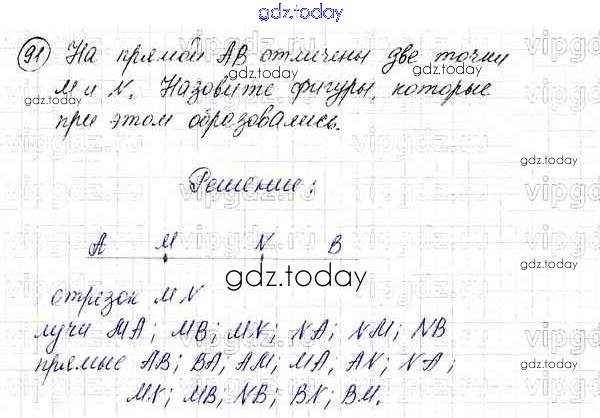 gdz.today
91 На прямой АВ отмечены две точки
М и N. Назовите фигуры, которые
при этом образовались.
gdz.today
gdz.today
gdz.today
Решение:
А М N В
gdz.today
отрезок MN
лучи МА; МВ; MN; NA; NM; NB
прямые АВ; ВА, АМ; МА, AN; NA;
MN; МВ; NB; BN; ВМ.
gdz.today
vipgdz.ru